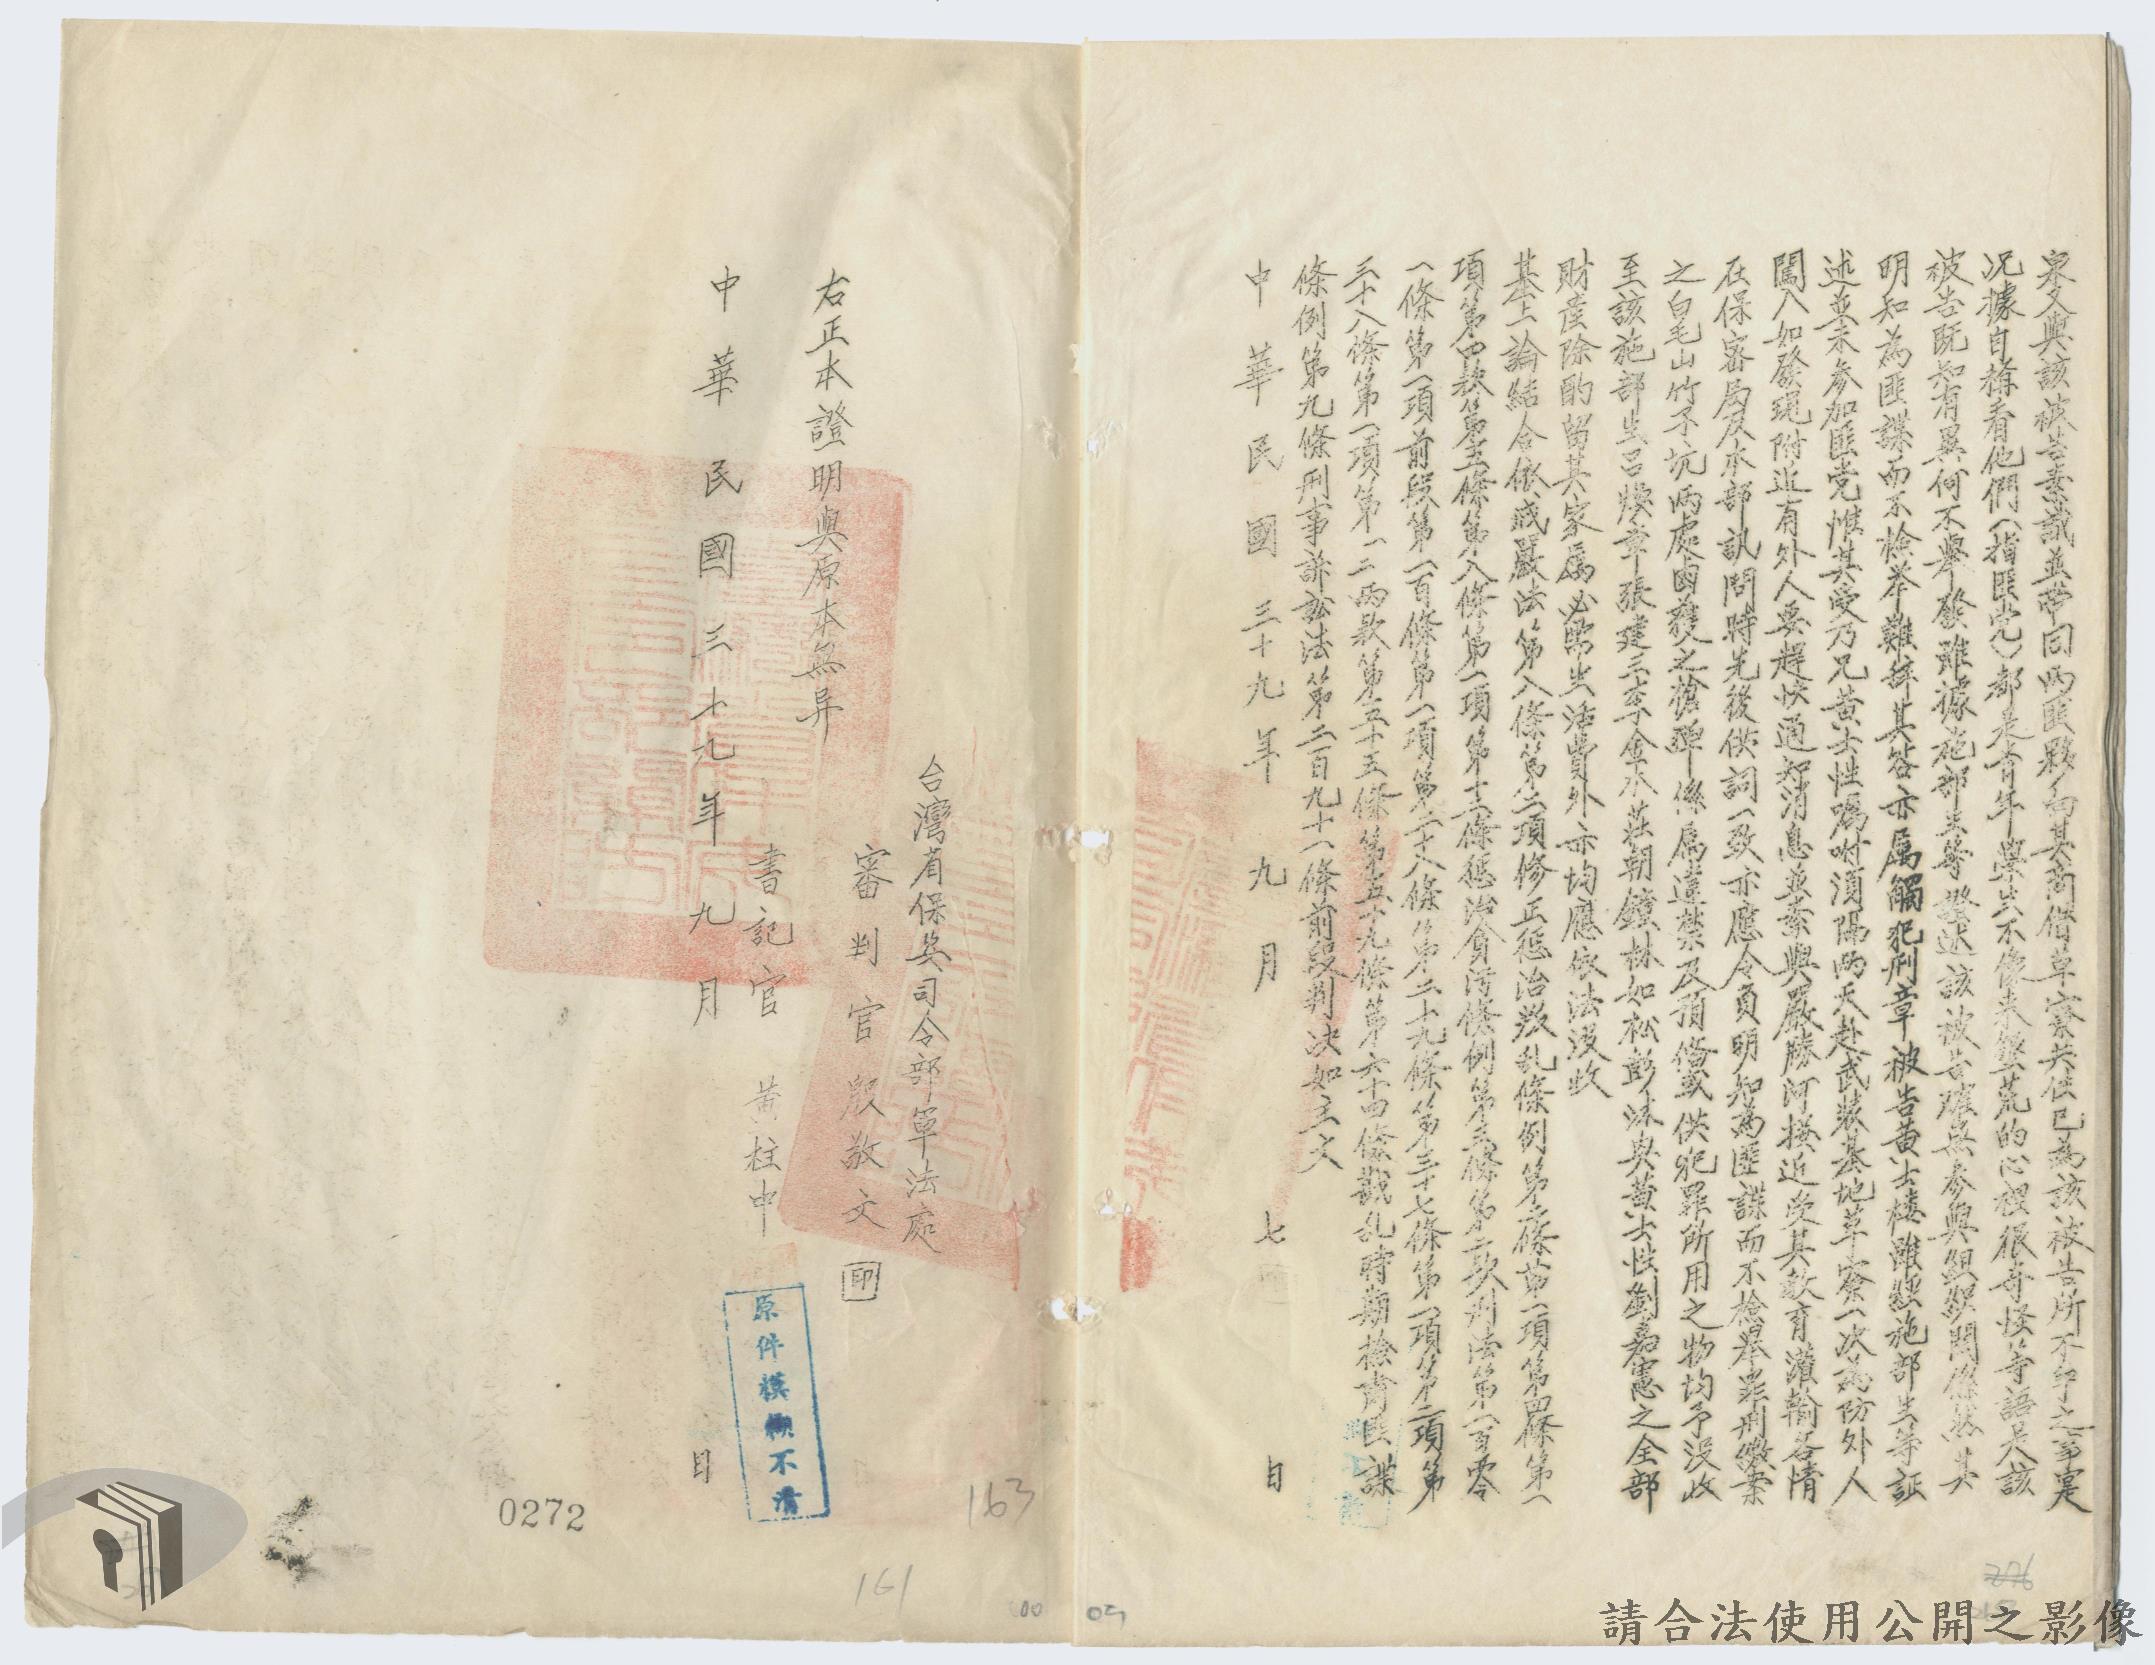 泉又與該被告素識並帶同兩匪夥向其商借草寮共住已為該被告所不争之事寔
况據自稱看他們（指匪党）都是青年學生不像来墾荒的心裡很奇怪等語是該
被告既知有異何不舉發雖據施部生等證述該被告確無參與組織関係然其
明知為匪諜而不檢举難辞其咎亦屬觸犯刑章被告黃士樓雖經施部生等証
述並未參加匪党惟其受乃兄黃士性囑咐須隔兩天赴武裝基地草寮一次為防外人
闖入如發現附近有外人要趕快通知消息並素與嚴勝阿接近受其教育灌輸各情
在保密局及本部訊問時先後供詞一致亦應令負明知為匪諜而不檢舉罪刑繳案
之白毛山竹子坑兩處鹵獲之槍弹係属違禁及預俻或供犯罪所用之物均予没收
至該施部生呂煥章張建三李金木莊朝鐘林如松彭沐興黃士性劉嘉憲之全部
財產除酌留其家属必需生活費外亦均應依法没收
基上論結合依戒嚴法第八條第二項修正惩治叛乱條例第二條第一項第四條第一
項第四款第五條第八條第一項第十二條惩治貪污條例第三條第二款刑法第一百零
一條第一項前段第一百條第一項第二十八條第二十九條第三十七條第一項第二項第
三十八條第一項第一二兩款第五十五條第五十九條第六十四條戡乱時期檢肅匪諜
條例第九條刑事訴訟法第二百九十一條前段判决如主文
中華民國三十九年九月七日
台灣省保安司令部軍法處
審判官殷敬文 印
右正本證明與原本無异
書記官 黃柱中
中華民國三十九年九月 日
原件模糊不清
0272
163
161
請合法使用公開之影像